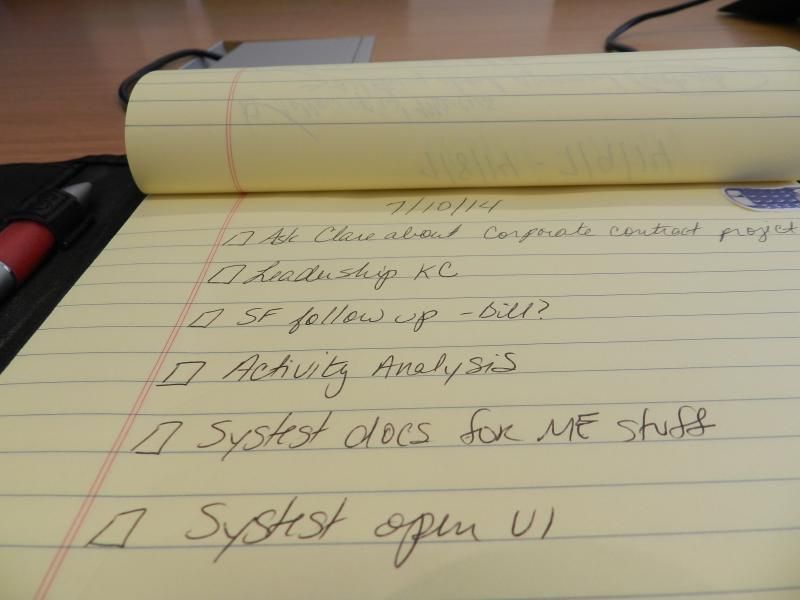 7/10/14
Ask Clare about corporate contract project
Leadership KC
SF follow up - Bill?
Activity Analysis
Systest docs for ME stuff
Systest open UI